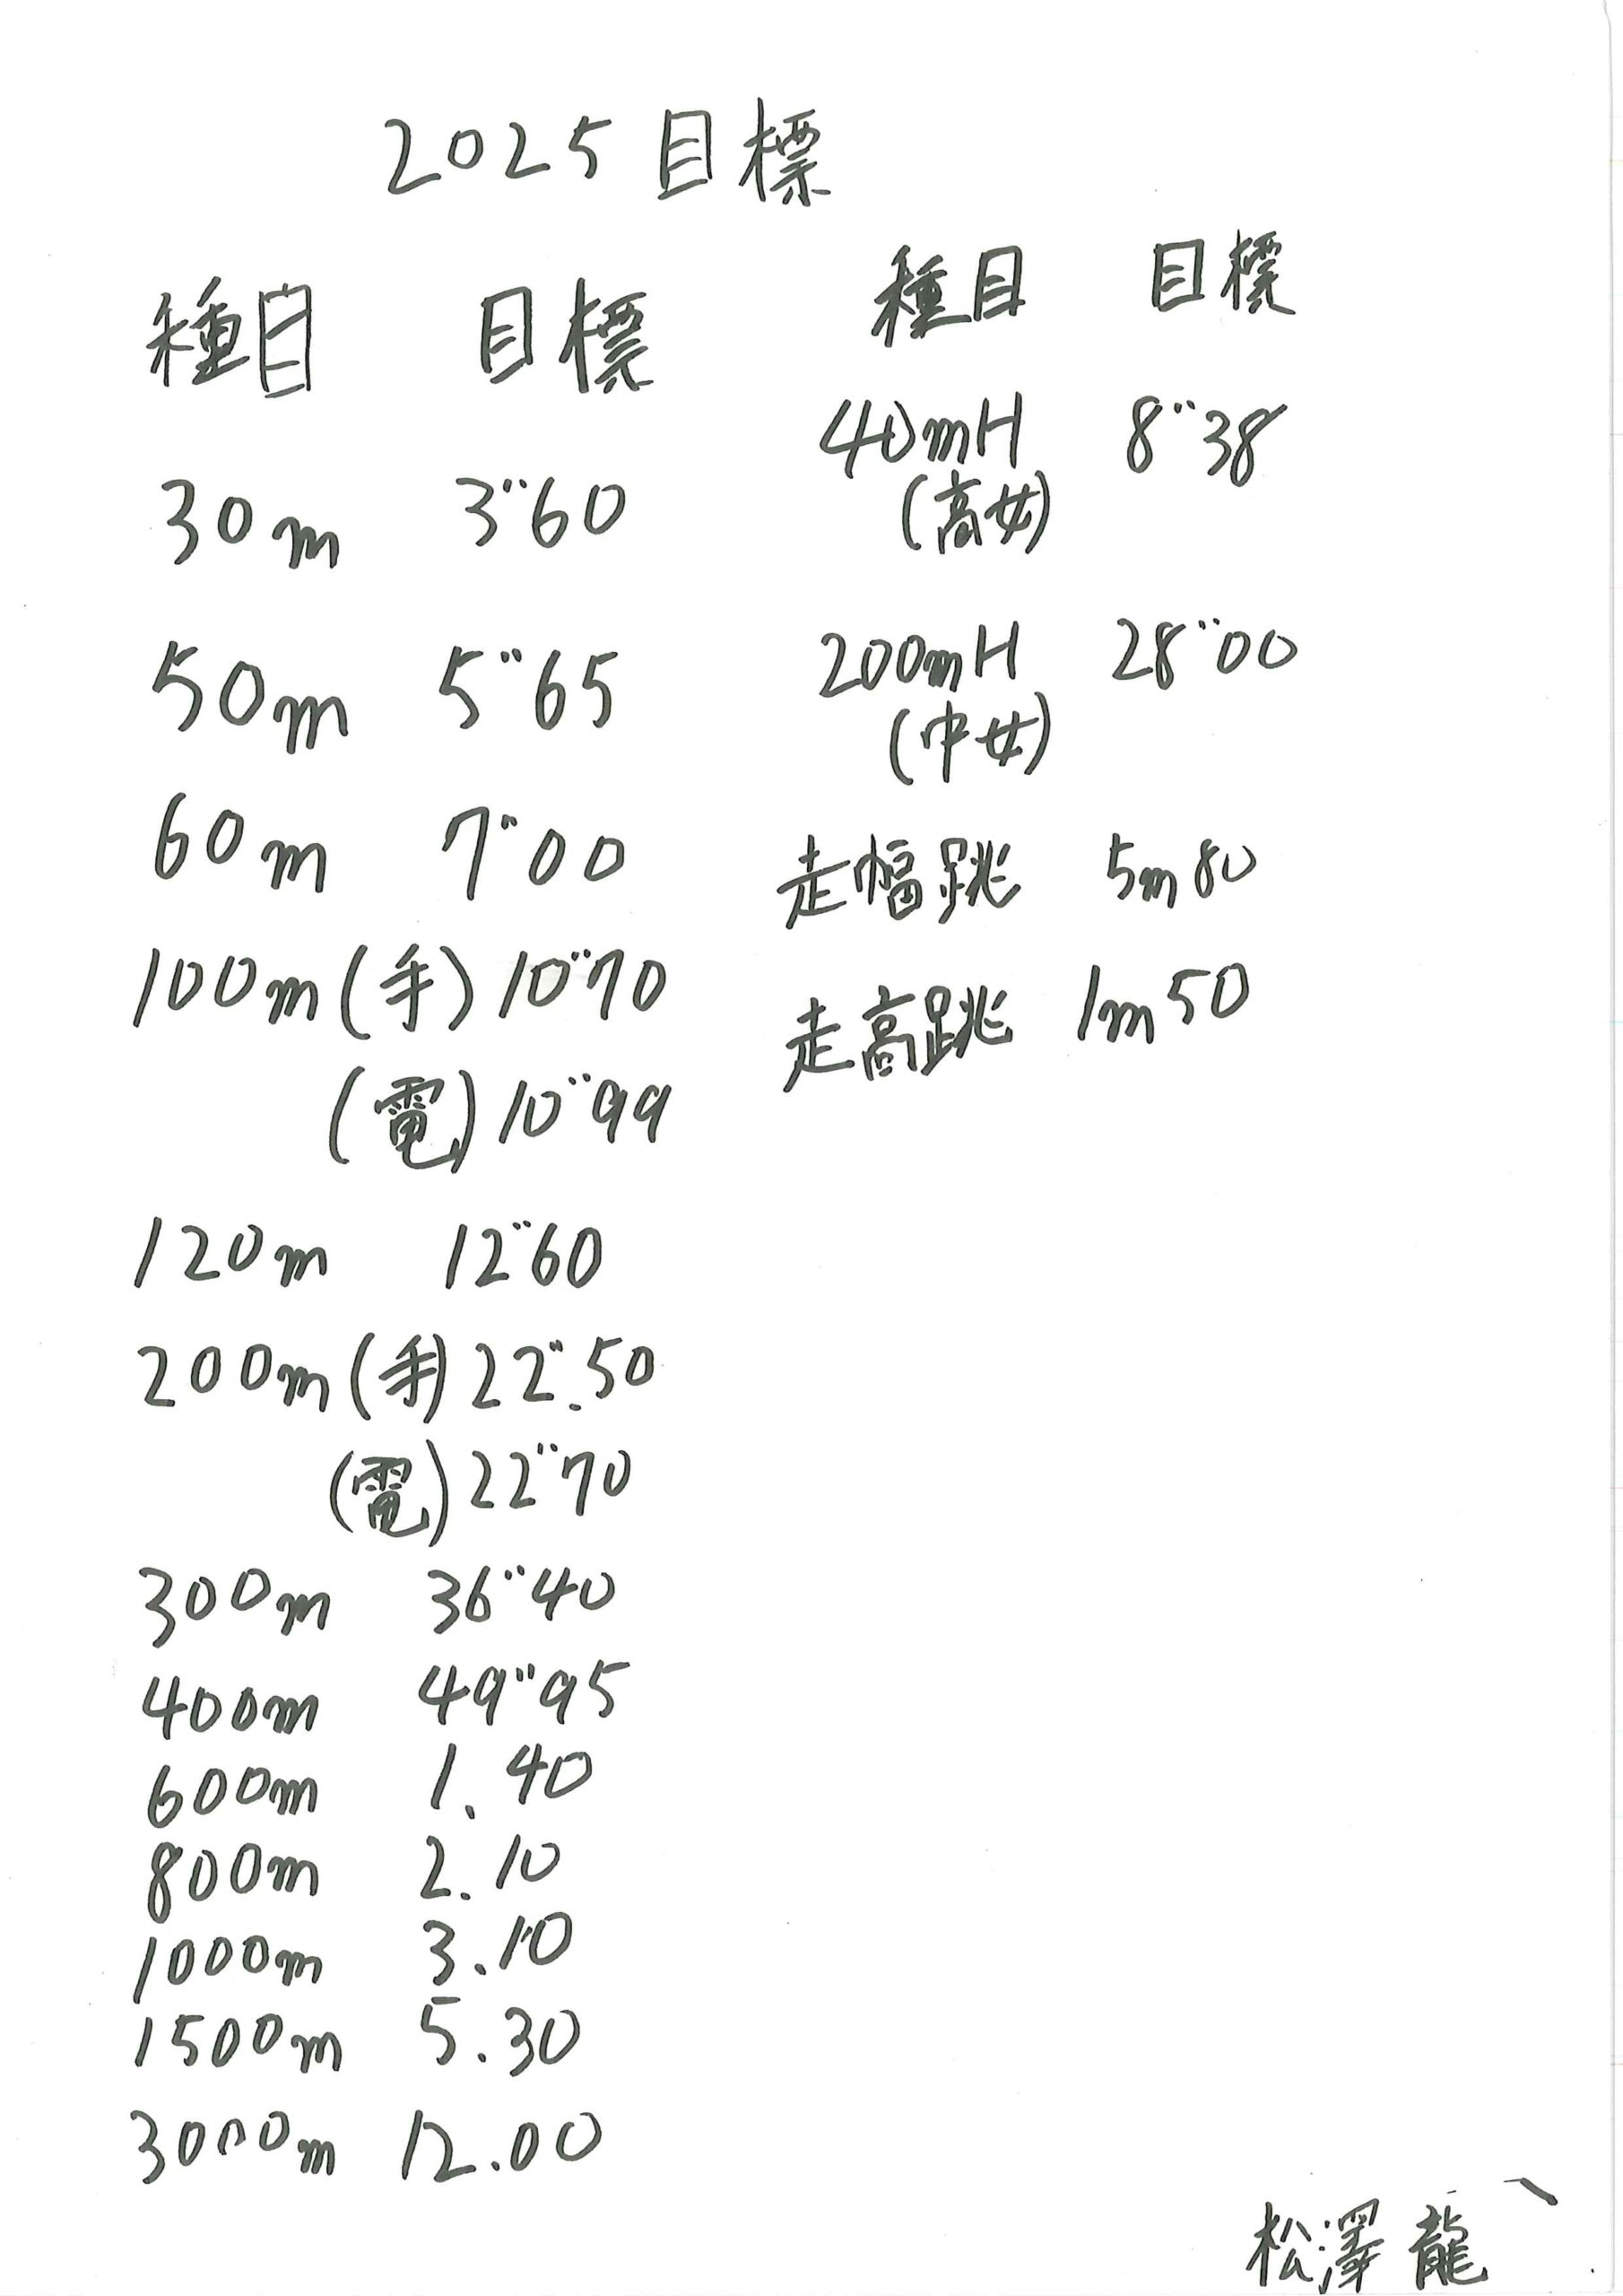 2025目標
種目 目標
30m 3"60
50m 5"65
60m 7"00
100m(手) 10"70
(電) 10"99
120m 12"60
200m(手) 22".50
(電) 22"70
300m 36"40
400m 49"95
600m 1.40
800m 2.10
1000m 3.10
1500m 5.30
3000m 12.00
種目 目標
40mH 8"38
(高女)
200mH 28"00
(中女)
走幅跳 5m80
走高跳 1m50
松澤龍